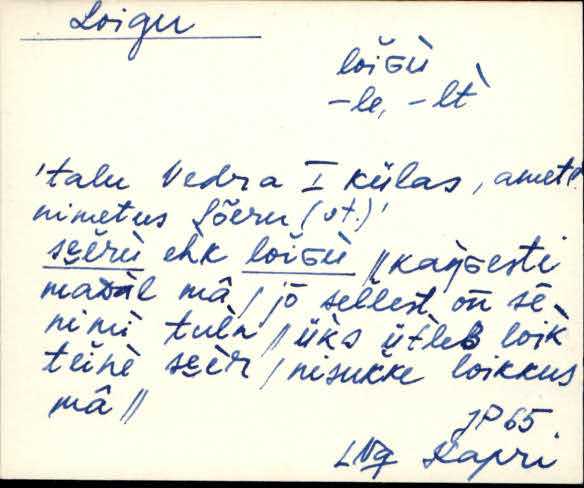 Loigu
loĭGù
-le, -lt̀
'talu Vedra I külas, ameti
nimetus Sõeru (vt.)'
sɛĕrù ehk loĭGù // kaŋGesti
madàl mâ / jō sellest̀ on sē
nimì tulǹ // üks ütleB loik̀
teĭnè sɛèr / nisukke loikkus
mâ //
JP 65.
LNg Kapri